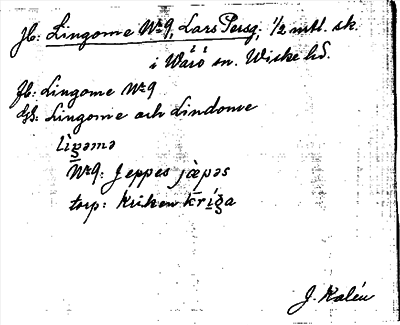 Jb: Lingome No 9, Lars Persg; 1/2 mtl. sk.
i Warö sn. Wiske hd.
Jb: Lingome No 9
Lingome och Lindome
No 9: Jeppes jæpəs
torp: Kriken
J. Kalén